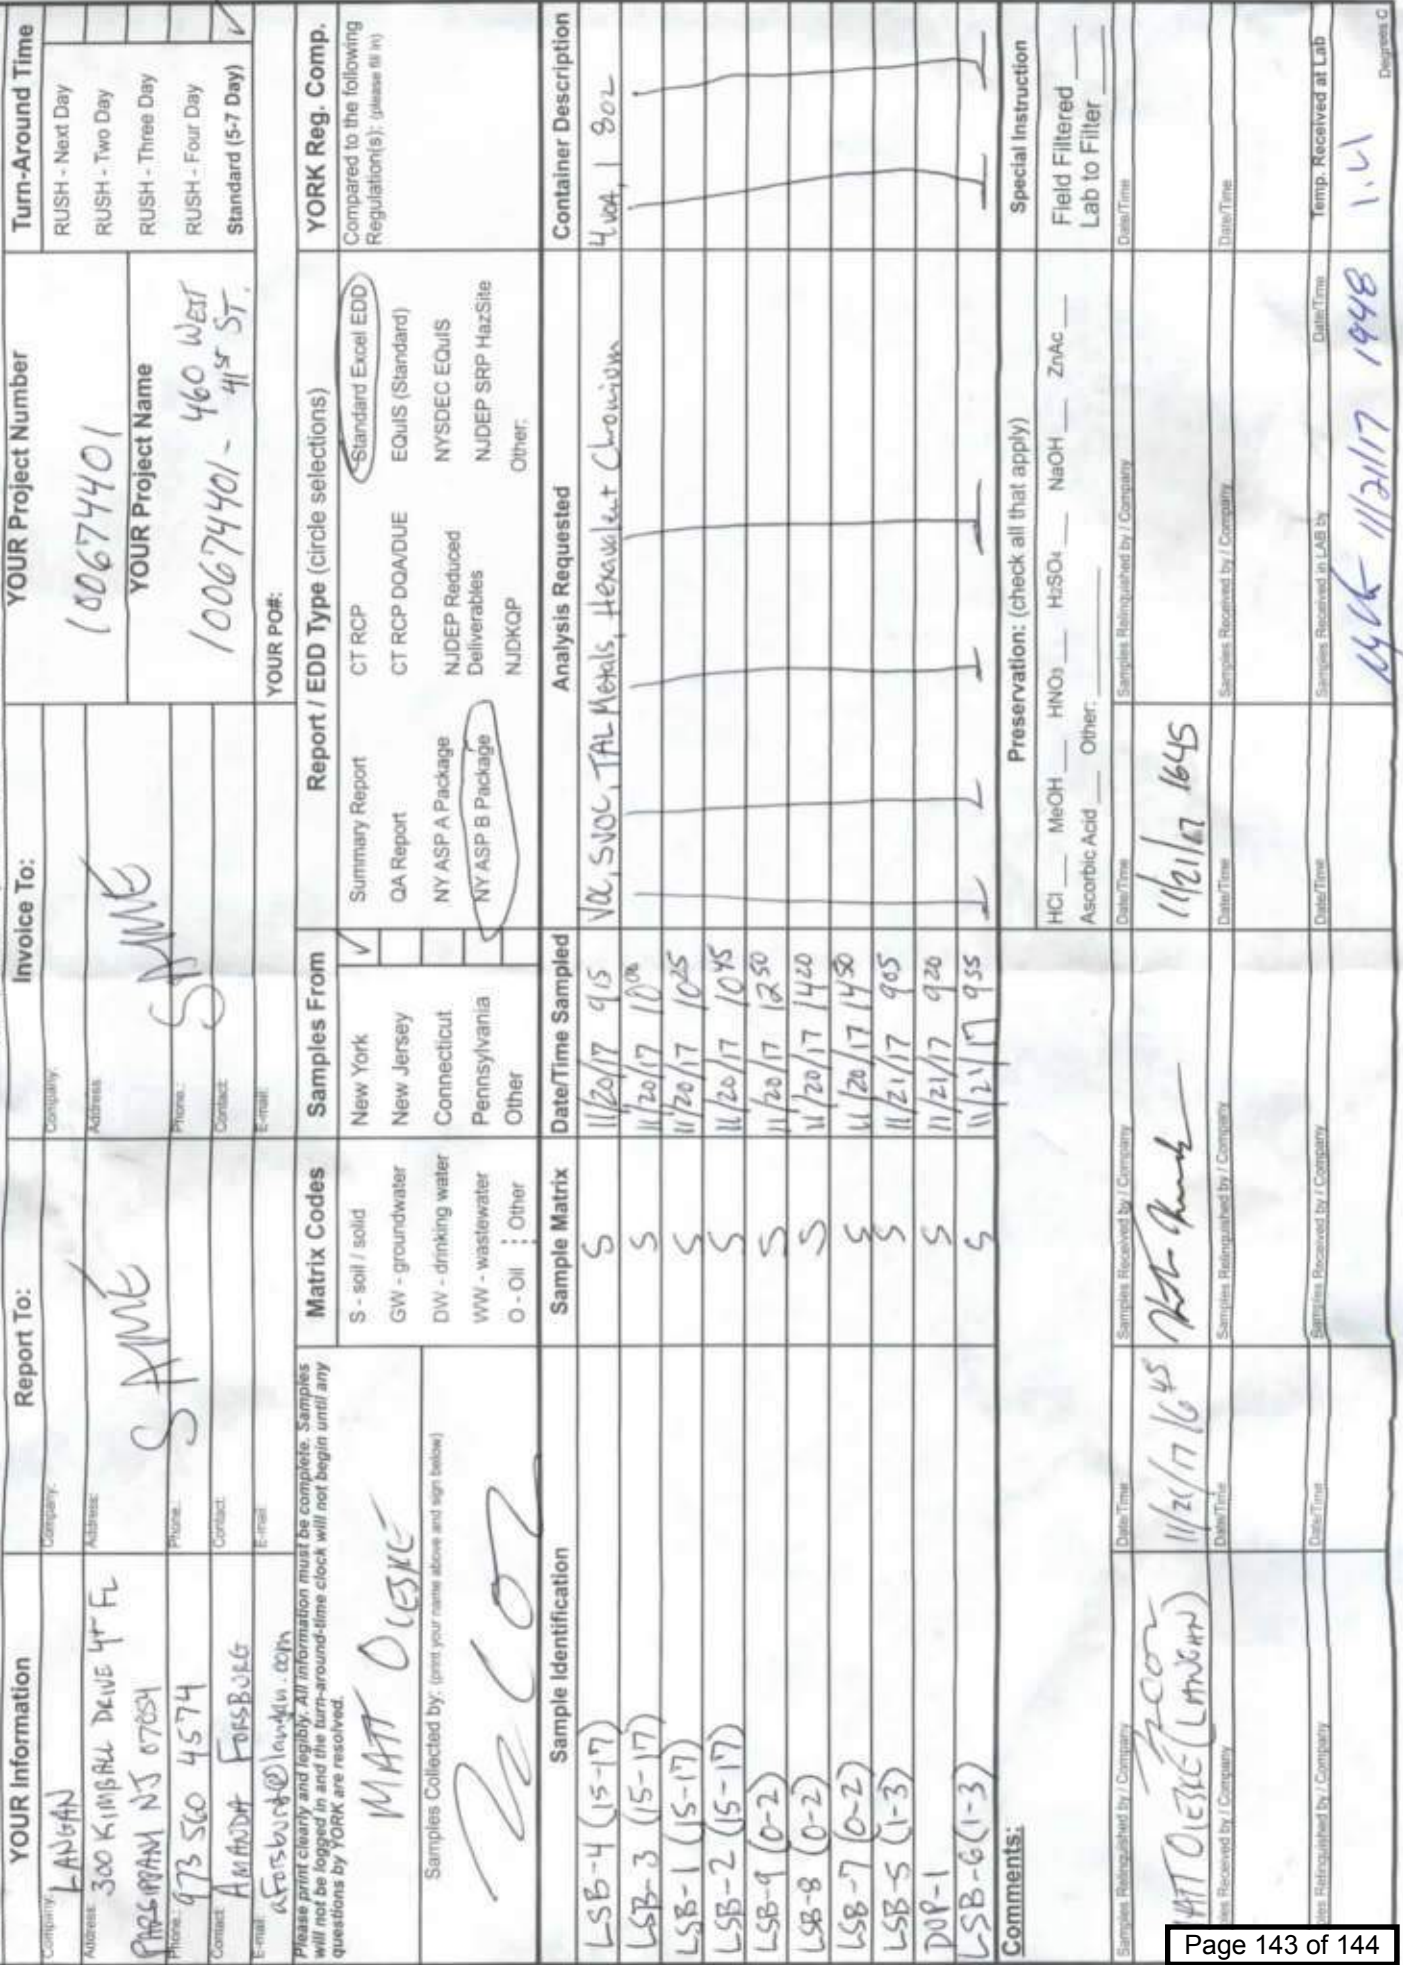 YOUR Information
Company: LANGAN
Address: 300 KIMBALL DRIVE 4TH FL
PARSIPPANY NJ 07054
Phone.: 973 560 4574
Contact: AMANDA FORSBURG
E-mail: aforsburg@langan.com
Report To:
Company:
Address:
SAME
Phone.:
Contact:
E-mail:
Invoice To:
Company:
Address:
SAME
Phone.:
Contact:
E-mail:
YOUR Project Number
100674401
YOUR Project Name
100674401 - 460 WEST
41ST ST.
YOUR PO#:
Turn-Around Time
RUSH - Next Day
RUSH - Two Day
RUSH - Three Day
RUSH - Four Day
Standard (5-7 Day) ✓
Please print clearly and legibly. All information must be complete. Samples
will not be logged in and the turn-around-time clock will not begin until any
questions by YORK are resolved.
MATT OLESKE
Samples Collected by: (print your name above and sign below)
Matrix Codes
S - soil / solid
GW - groundwater
DW - drinking water
WW - wastewater
O - Oil Other
Samples From
New York ✓
New Jersey
Connecticut
Pennsylvania
Other
Report / EDD Type (circle selections)
Summary Report CT RCP Standard Excel EDD
QA Report CT RCP DQA/DUE EQuIS (Standard)
NY ASP A Package NJDEP Reduced NYSDEC EQuIS
NY ASP B Package Deliverables NJDEP SRP HazSite
NJDKQP Other:
YORK Reg. Comp.
Compared to the following
Regulation(s): (please fill in)
Sample Identification Sample Matrix Date/Time Sampled Analysis Requested Container Description
LSB-4 (15-17) S 11/20/17 915 VOC, SVOC, TAL Metals, Hexavalent Chromium 4 VOA, 1 8oz
LSB-3 (15-17) S 11/20/17 1000
LSB-1 (15-17) S 11/20/17 1025
LSB-2 (15-17) S 11/20/17 1045
LSB-9 (0-2) S 11/20/17 1250
LSB-8 (0-2) S 11/20/17 1420
LSB-7 (0-2) S 11/20/17 1450
LSB-5 (1-3) S 11/21/17 905
DUP-1 S 11/21/17 920
LSB-6 (1-3) S 11/21/17 935
Comments:
Preservation: (check all that apply)
HCl ___ MeOH ___ HNO3 ___ H2SO4 ___ NaOH ___ ZnAc ___
Ascorbic Acid ___ Other:
Special Instruction
Field Filtered ___
Lab to Filter ___
Samples Relinquished by / Company Date/Time Samples Received by / Company Date/Time Samples Relinquished by / Company Date/Time
MATT OLESKE (LANGAN) 11/21/17 1645 11/21/17 1645
Samples Received by / Company Date/Time Samples Relinquished by / Company Date/Time Samples Received by / Company Date/Time
Samples Relinquished by / Company Date/Time Samples Received by / Company Date/Time Samples Received in LAB by Date/Time Temp. Received at Lab
11/21/17 1948
Degrees C
Page 143 of 144